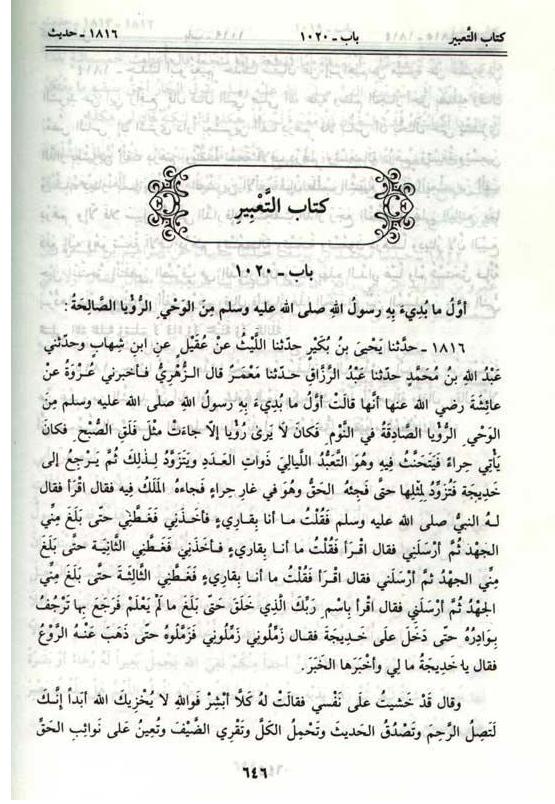 كتاب التعبير باب - ١٠٢٠ ١٨١٦ - حديث
كتاب التَّعْبِيرِ
باب - ١٠٢٠
أوَّلُ ما بُدِيءَ بِهِ رسولُ اللهِ صلى الله عليه وسلم مِنَ الوَحْيِ الرُّؤيا الصَّالِحَةُ:
١٨١٦ - حدَّثنا يَحْيى بنُ بُكَيْرٍ حدّثنا اللَّيْثُ عنْ عُقَيْلٍ عنِ ابنِ شِهابٍ وحدّثني
عَبْدُ اللهِ بنُ مُحَمَّدٍ حدّثنا عَبْدُ الرَّزَّاقِ حدّثنا مَعْمَرٌ قال الزُّهْرِيُّ فأخبرني عُرْوَةُ عنْ
عائِشَةَ رضي الله عنها أنَّها قالَتْ أوَّلُ ما بُدِيءَ بِهِ رسولُ اللهِ صلى الله عليه وسلم مِنَ
الوَحْيِ الرُّؤيا الصَّادِقَةُ في النَّوْمِ فَكانَ لا يَرىٰ رُؤيا إلَّا جاءَتْ مِثْلَ فَلَقِ الصُّبْحِ فكانَ
يَأتِي حِراءً فَيَتَحَنَّثُ فِيهِ وهُوَ التَّعَبُّدُ اللَّيالِيَ ذَواتِ العَدَدِ ويَتَزَوَّدُ لِذلِكَ ثُمَّ يَرْجِعُ إلى
خَدِيجَةَ فَتُزَوِّدُ لِمِثْلِها حتَّى فَجِئَهُ الحَقُّ وهُوَ في غارِ حِراءٍ فَجاءَهُ المَلَكُ فِيهِ فقال اقْرَأْ فقال
لهُ النبيُّ صلى الله عليه وسلم فَقُلْتُ ما أنا بِقارِيءٍ فأخَذَنِي فَغَطَّنِي حتَّى بَلَغَ مِنِّي
الجهْدَ ثُمَّ أرْسَلَنِي فقال اقْرَأْ فَقُلْتُ ما أنا بِقارِيءٍ فأخَذَنِي فَغَطَّنِي الثَّانِيَةَ حتَّى بَلَغَ
مِنِّي الجَهْدُ ثمَّ أرْسَلَنِي فقال اقْرَأْ فَقُلْتُ ما أنا بِقارِيءٍ فَغَطَّنِي الثَّالِثَةَ حتَّى بَلَغَ مِنِّي
الجَهْدُ ثُمَّ أرْسَلَنِي فقال اقْرأْ بِاسْمِ رَبِّكَ الَّذِي خَلَقَ حَتَّى بَلَغَ ما لَمْ يَعْلَمْ فَرَجَعَ بِها تَرْجُفُ
بَوادِرُهُ حتَّى دَخَلَ علَى خَدِيجَةَ فقال زَمِّلُونِي زَمِّلُونِي فَزَمَّلُوهُ حتَّى ذَهَبَ عَنْهُ الرَّوْعُ
فقال يا خَدِيجَةُ ما لِي وأخْبَرَها الخَبَرَ.
وقال قَدْ خَشِيتُ علَى نَفْسِي فقالَتْ لَهُ كَلَّا أبْشِرْ فَواللهِ لا يُخْزِيكَ الله أبَداً إنَّكَ
لَتَصِلُ الرَّحِمَ وتَصْدُقُ الحَدِيثَ وتَحْمِلُ الكَلَّ وتَقْرِي الضَّيْفَ وتُعِينُ علَى نَوائِبِ الحَقِّ
٦٤٦